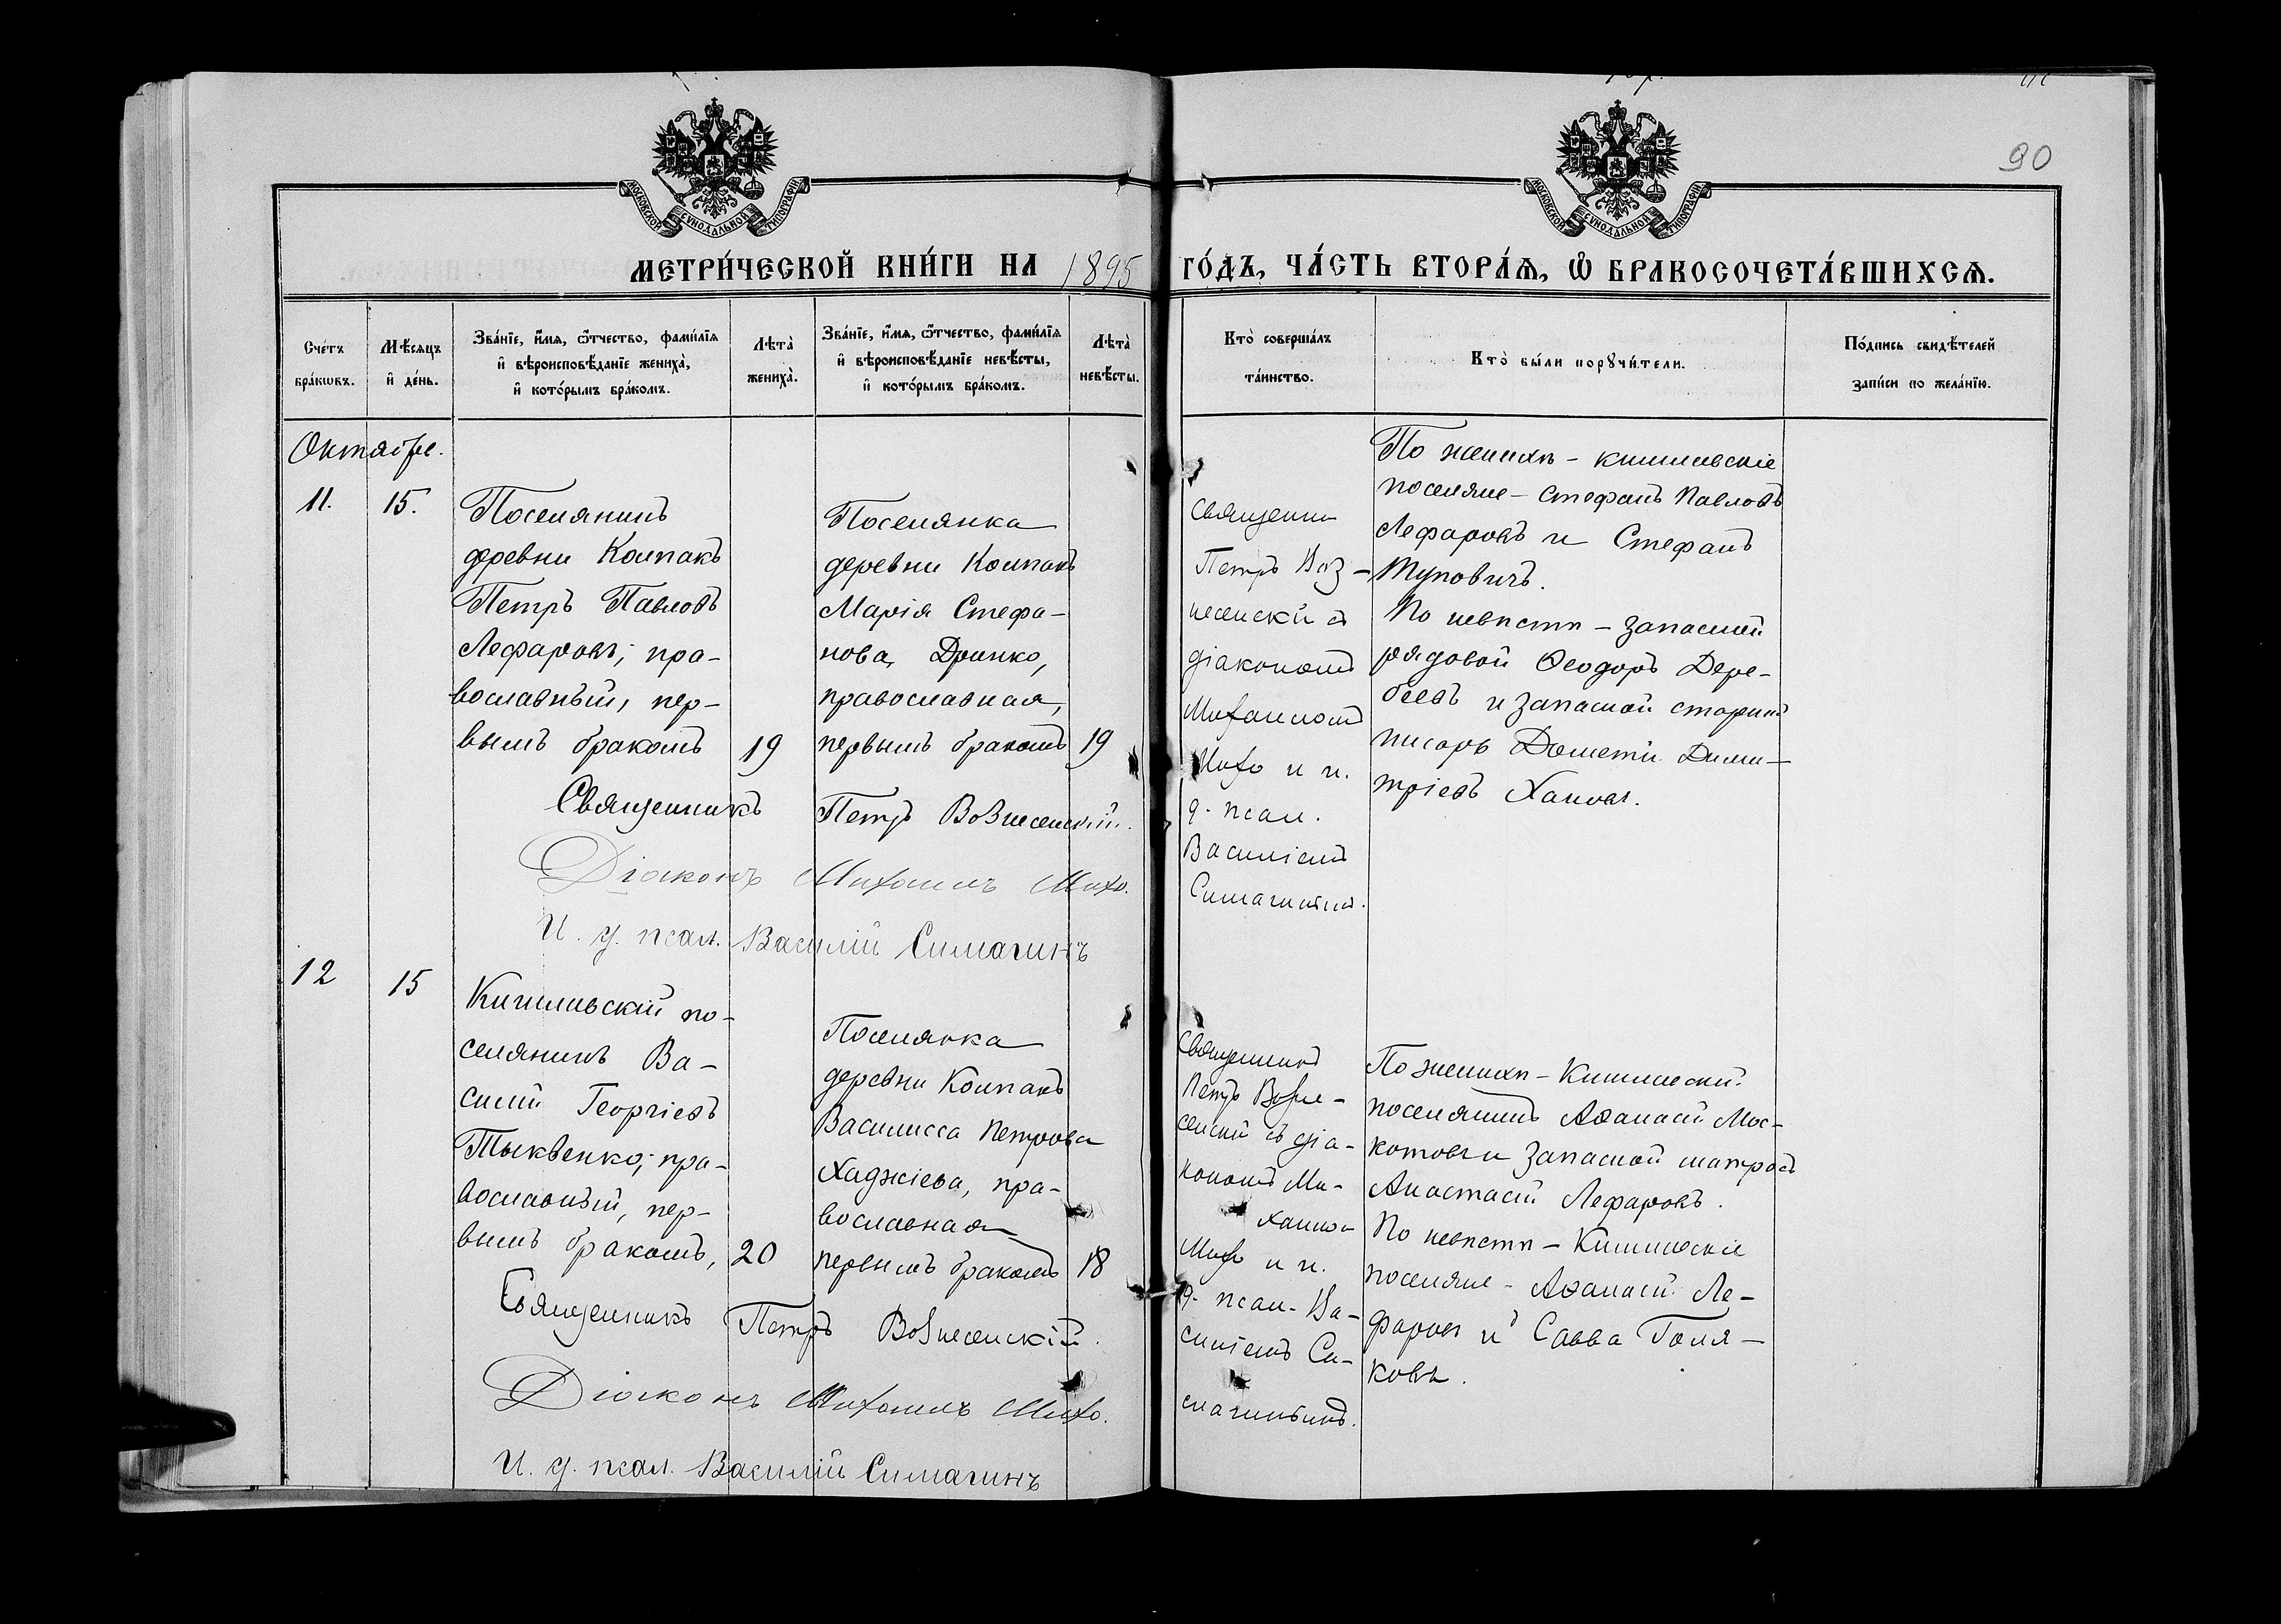 90
МОСКОВСКОЙ СУНОДАЛЬНОЙ ТИПОГРАФІИ
МОСКОВСКОЙ СУНОДАЛЬНОЙ ТИПОГРАФІИ
МЕТРИ́ЧЕСКОЙ КНИ́ГИ НА 1895 ГО́ДЪ, ЧА́СТЬ ВТОРА́Ѧ, Ѽ БРАКОСОЧЕТА́ВШИХСѦ.
Сче́тъ
бра́кѡвъ.
Мѣ́сѧцъ
и҆ де́нь.
Зва́нїе, и҆́мѧ, ѻ҆́тчество, фами́лїѧ
и҆ вѣроисповѣ́данїе жениха̀,
и҆ кото́рымъ бра́комъ.
Лѣта̀
жениха̀.
Зва́нїе, и҆́мѧ, ѻ҆́тчество, фами́лїѧ
и҆ вѣроисповѣ́данїе невѣ́сты,
и҆ кото́рымъ бра́комъ.
Лѣта̀
невѣ́сты.
Кто̀ соверша́лъ
та́инство.
Кто̀ бы́ли порꙋчи́тели.
По́дпись свидѣ́телей
за́писи по жела́нїю.
Октябрь.
11.
15.
Поселянинъ
деревни Колпакъ
Петръ Павловъ
Лефаровъ, пра-
вославный, пер-
вымъ бракомъ
19
Поселянка
деревни Колпакъ
Марія Стефа-
нова Дринко,
православная,
первымъ бракомъ
19
Священни
Петръ Воз-
несенскій съ
діакономъ
Михаиломъ
Михо и и.
д. псал.
Василіемъ
Симагинымъ.
По женихѣ - кишиевскіе
поселяне - Стефанъ Павловъ
Лефаровъ и Стефанъ
Туповичъ.
По невѣстѣ - запасной
рядовой Ѳеодоръ Дере-
беевъ и запасной старшій
писарь Дометій Дими-
тріевъ Хановъ.
Священникъ Петръ Вознесенскій.
Діаконъ Михаилъ Михо.
И. д. псал. Василій Симагинъ
12
15
Кишиевскій по-
селянинъ Ва-
силій Георгіевъ
Тыквенко, пра-
вославный, пер-
вымъ бракомъ,
20
Поселянка
деревни Колпакъ
Василисса Петрова
Хаджіева, пра-
вославная
первымъ бракомъ
18
Священникъ
Петръ Возне-
сенскій съ діа-
кономъ Ми-
хаиломъ
Михо и и.
д. псал. Ва-
силіемъ Си-
магинымъ.
По женихѣ - Кишиевскій
поселянинъ Аѳанасій Мос-
котовъ и запасной матросъ
Анастасій Лефаровъ.
По невѣстѣ - Кишиевскіе
поселяне - Аѳанасій Ле-
фаровъ и Савва Голя-
ковъ.
Священникъ Петръ Вознесенскій.
Діаконъ Михаилъ Михо.
И. д. псал. Василій Симагинъ